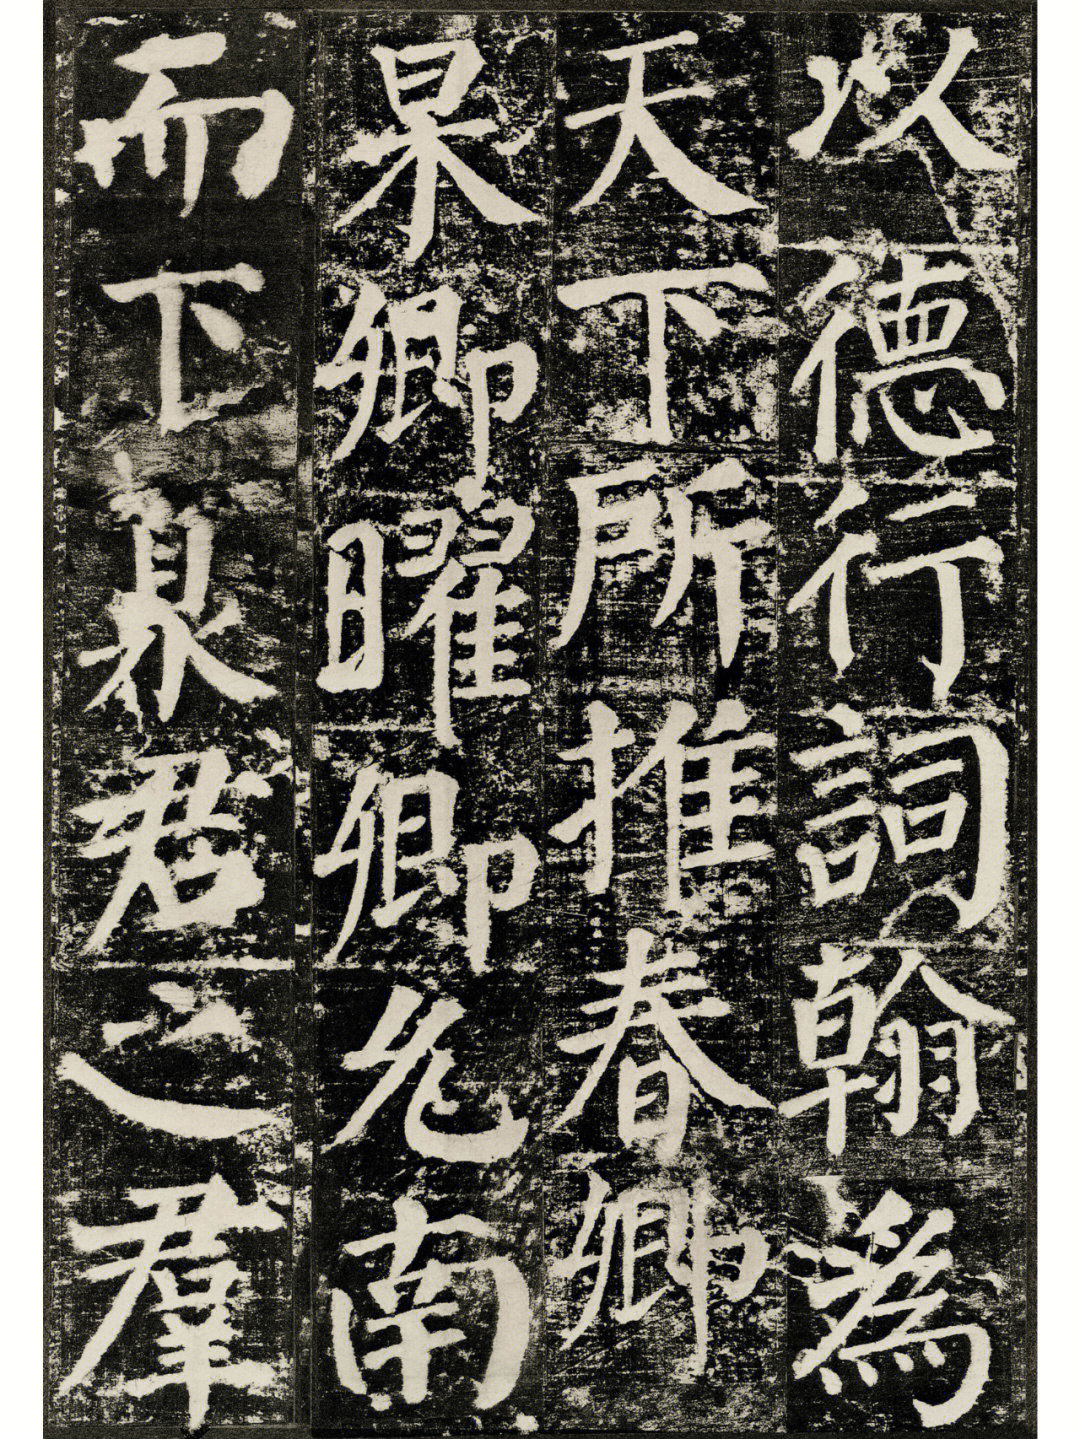 以德行詞翰為
天下所推春卿
杲卿曜卿允南
而下衆君之群